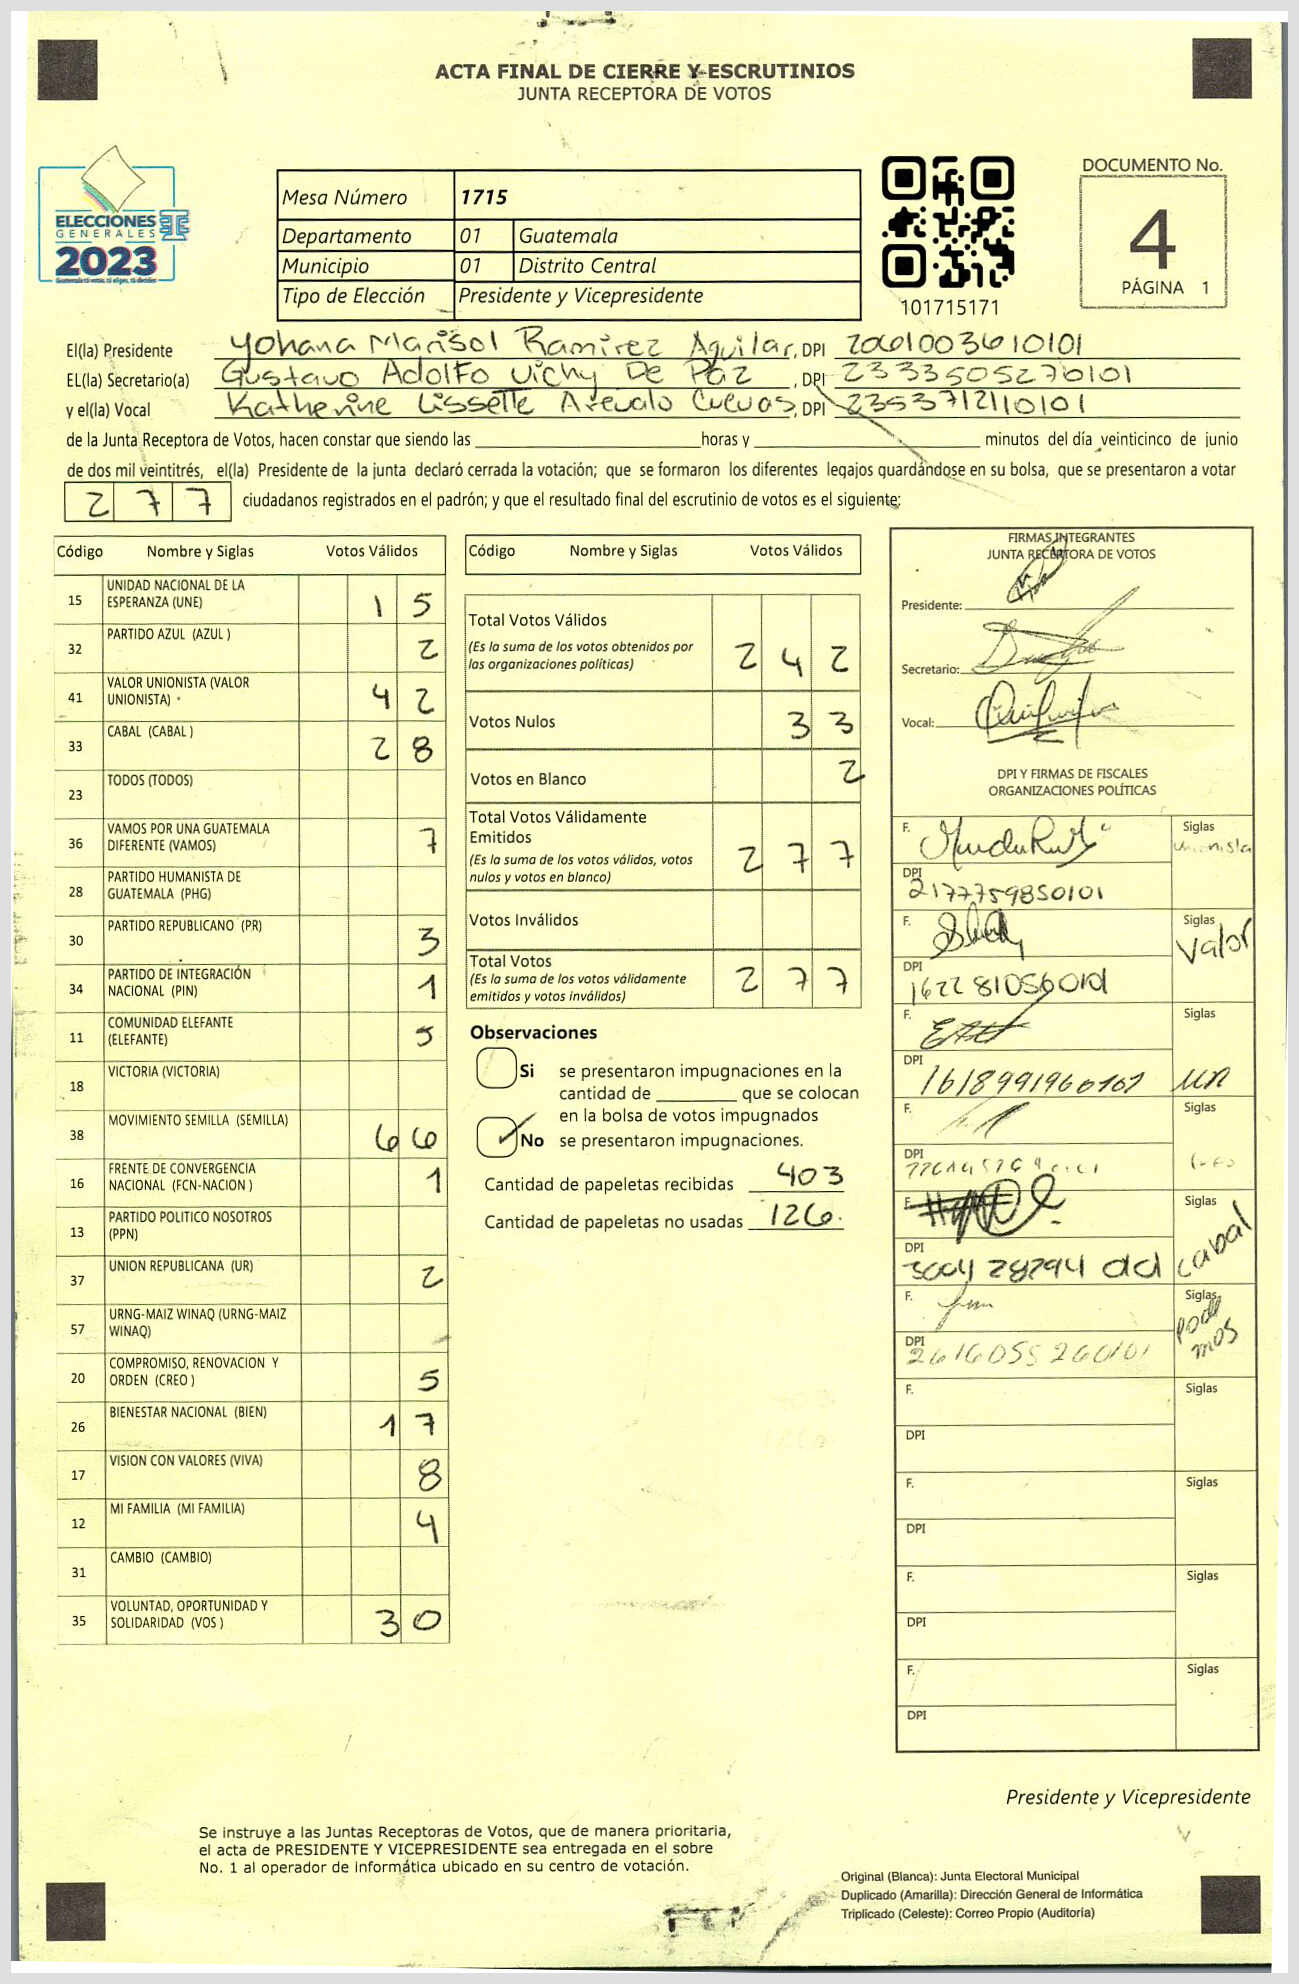 ACTA FINAL DE CIERRE Y ESCRUTINIOS
JUNTA RECEPTORA DE VOTOS
ELECCIONES
GENERALES
2023
Mesa Número 1715
Departamento 01 Guatemala
Municipio 01 Distrito Central
Tipo de Elección Presidente y Vicepresidente
101715171
DOCUMENTO No.
4
PÁGINA 1
El(la) Presidente Yohana Marisol Ramirez Aguilar, DPI 2061003610101
EL(la) Secretario(a) Gustavo Adolfo Vichy De Paz, DPI 2333505270101
y el(la) Vocal Katherine Lissette Arevalo Cuevas, DPI 2353712110101
de la Junta Receptora de Votos, hacen constar que siendo las ____ horas y ____ minutos del día veinticinco de junio
de dos mil veintitrés, el(la) Presidente de la junta declaró cerrada la votación; que se formaron los diferentes legajos guardándose en su bolsa, que se presentaron a votar
277 ciudadanos registrados en el padrón; y que el resultado final del escrutinio de votos es el siguiente:
Código Nombre y Siglas Votos Válidos
15 UNIDAD NACIONAL DE LA ESPERANZA (UNE) 15
32 PARTIDO AZUL (AZUL ) 2
41 VALOR UNIONISTA (VALOR UNIONISTA) 42
33 CABAL (CABAL ) 28
23 TODOS (TODOS)
36 VAMOS POR UNA GUATEMALA DIFERENTE (VAMOS) 7
28 PARTIDO HUMANISTA DE GUATEMALA (PHG)
30 PARTIDO REPUBLICANO (PR) 3
34 PARTIDO DE INTEGRACIÓN NACIONAL (PIN) 1
11 COMUNIDAD ELEFANTE (ELEFANTE) 5
18 VICTORIA (VICTORIA)
38 MOVIMIENTO SEMILLA (SEMILLA) 66
16 FRENTE DE CONVERGENCIA NACIONAL (FCN-NACION ) 1
13 PARTIDO POLITICO NOSOTROS (PPN)
37 UNION REPUBLICANA (UR) 2
57 URNG-MAIZ WINAQ (URNG-MAIZ WINAQ)
20 COMPROMISO, RENOVACION Y ORDEN (CREO ) 5
26 BIENESTAR NACIONAL (BIEN) 17
17 VISION CON VALORES (VIVA) 8
12 MI FAMILIA (MI FAMILIA) 4
31 CAMBIO (CAMBIO)
35 VOLUNTAD, OPORTUNIDAD Y SOLIDARIDAD (VOS ) 30
Código Nombre y Siglas Votos Válidos
Total Votos Válidos 242
(Es la suma de los votos obtenidos por
las organizaciones políticas)
Votos Nulos 33
Votos en Blanco 2
Total Votos Válidamente
Emitidos 277
(Es la suma de los votos válidos, votos
nulos y votos en blanco)
Votos Inválidos
Total Votos 277
(Es la suma de los votos válidamente
emitidos y votos inválidos)
Observaciones
Si se presentaron impugnaciones en la
cantidad de ____ que se colocan
en la bolsa de votos impugnados
No se presentaron impugnaciones.
Cantidad de papeletas recibidas 403
Cantidad de papeletas no usadas 126.
FIRMAS INTEGRANTES
JUNTA RECEPTORA DE VOTOS
Presidente:
Secretario:
Vocal:
DPI Y FIRMAS DE FISCALES
ORGANIZACIONES POLÍTICAS
F. Siglas unionista
DPI 2177759850101
F. Siglas Valor
DPI
F. Siglas
DPI
F. Siglas
DPI
F. Siglas cabal
DPI
F. Siglas podemos
DPI 2616055260101
F. Siglas
DPI
F. Siglas
DPI
F. Siglas
DPI
F. Siglas
DPI
Presidente y Vicepresidente
Se instruye a las Juntas Receptoras de Votos, que de manera prioritaria,
el acta de PRESIDENTE Y VICEPRESIDENTE sea entregada en el sobre
No. 1 al operador de informática ubicado en su centro de votación.
Original (Blanca): Junta Electoral Municipal
Duplicado (Amarilla): Dirección General de Informática
Triplicado (Celeste): Correo Propio (Auditoría)